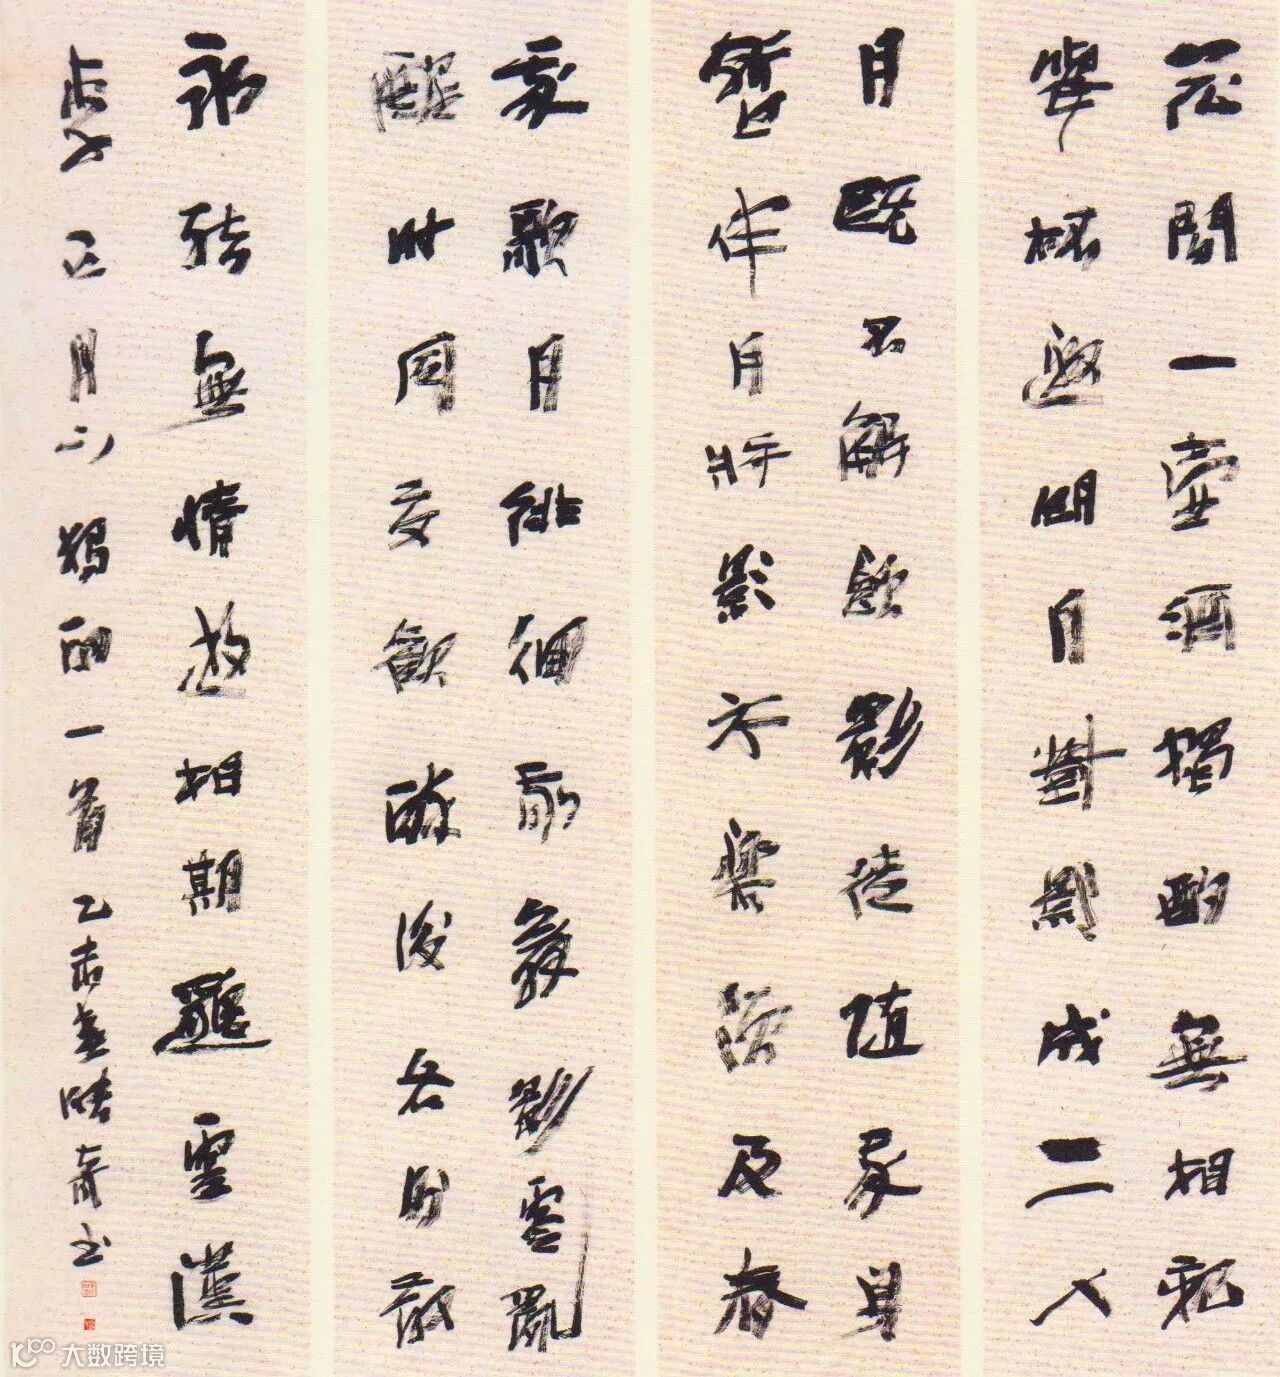 花間一壺酒獨酌無相親
舉杯邀明月對影成二人
月既不解飲影徒隨我身
暫伴月將影行樂須及春
我歌月徘徊我舞影零亂
醒時同交歡醉後各分散
永結無情遊相期邈雲漢
李白月下獨酌一首乙未春奇書
大数跨境